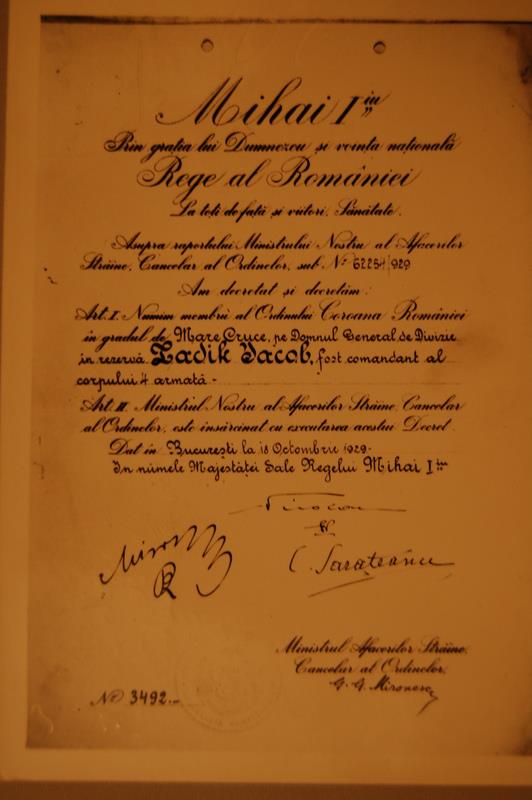 Mihai I iu
Prin grația lui Dumnezeu și voința națională
Rege al României
La toți de față și viitori, Sănătate.
Asupra raportului Ministrului Nostru al Afacerilor
Străine, Cancelar al Ordinelor, sub No 62254/929
Am decretat și decretăm:
Art. I. Numim membrii al Ordinului Coroana României
în gradul de Mare Cruce, pe Domnul General de Divizie
în rezervă Zadik Iacob, fost comandant al
corpului 4 armată -
Art. II. Ministrul Nostru al Afacerilor Străine, Cancelar
al Ordinelor, este însărcinat cu executarea acestui Decret.
Dat în București la 18 Octombrie 1929-
În numele Majestăței Sale Regelui Mihai I iu
Nicolae
Miron
C. Sarațeanu
Ministrul Afacerilor Străine,
Cancelar al Ordinelor,
G. G. Mironescu
No 3492.-